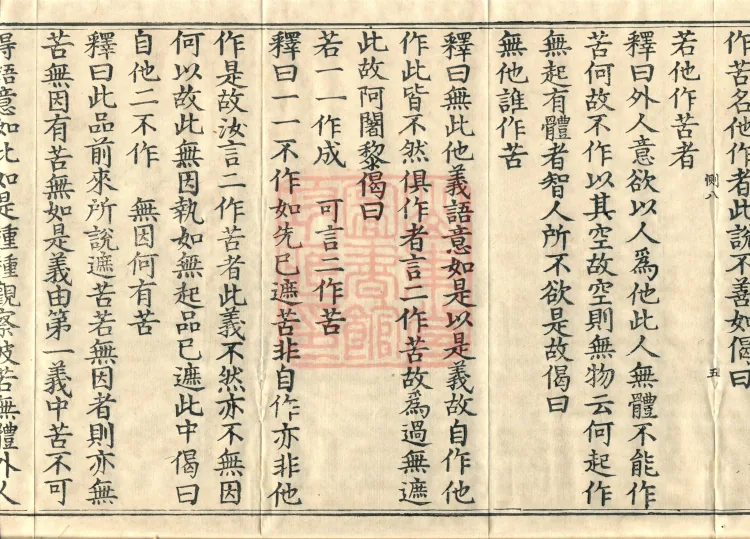 作苦名他作者此說不善如偈曰
若他作苦者
側八
五
釋曰外人意欲以人爲他此人無體不能作
苦何故不作以其空故空則無物云何起作
無起有體者智人所不欲是故偈曰
無他誰作苦
釋曰無此他義語意如是以是義故自作他
作此皆不然俱作者言二作苦故爲過無遮
此故阿闍黎偈曰
若一一作成　可言二作苦
釋曰一一不作如先已遮苦非自作亦非他
作是故汝言二作苦者此義不然亦不無因
何以故此無因執如無起品已遮此中偈曰
自他二不作　無因何有苦
釋曰此品前來所說遮苦若無因者則亦無
苦無因有苦無如是義由第一義中苦不可
得語意如此如是種種觀察彼苦無體外人